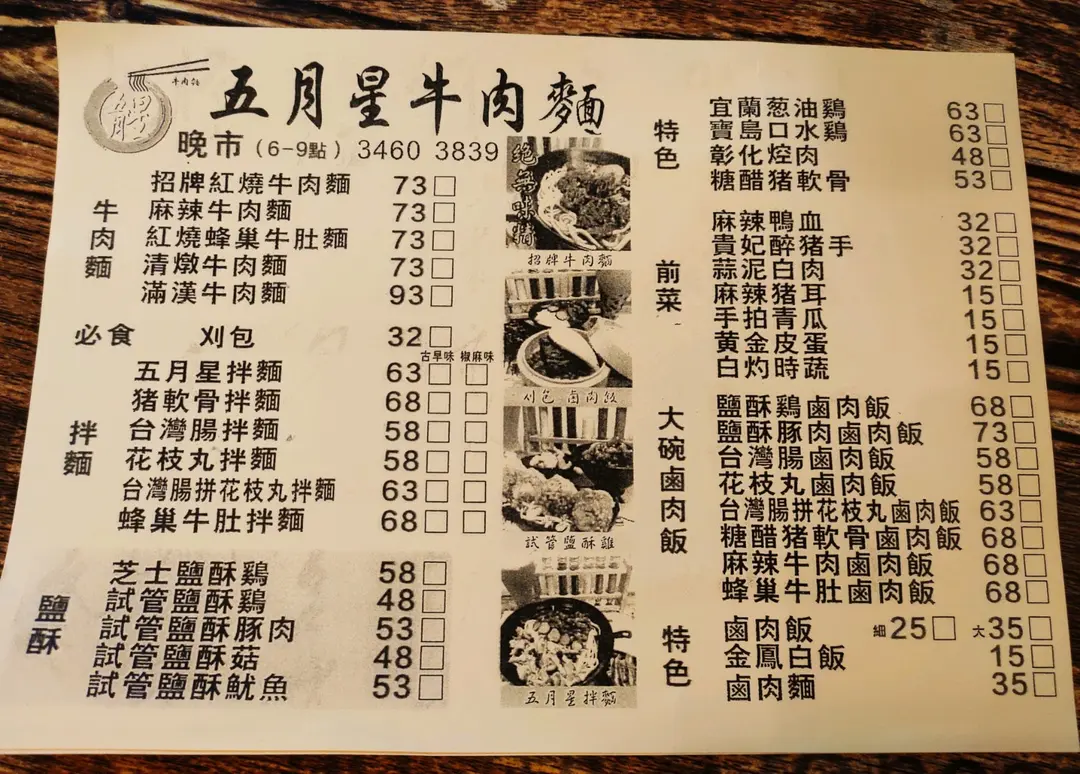 牛肉麵
五月星牛肉麵
晚市(6-9點) 3460 3839
牛肉麵
招牌紅燒牛肉麵 73
麻辣牛肉麵 73
紅燒蜂巢牛肚麵 73
清燉牛肉麵 73
滿漢牛肉麵 93
必食 刈包 32
古早味 椒麻味
拌麵
五月星拌麵 63
猪軟骨拌麵 68
台灣腸拌麵 58
花枝丸拌麵 58
台灣腸拼花枝丸拌麵 63
蜂巢牛肚拌麵 68
鹽酥
芝士鹽酥鷄 58
試管鹽酥鷄 48
試管鹽酥豚肉 53
試管鹽酥菇 48
試管鹽酥魷魚 53
招牌牛肉麵
刈包 卤肉飯
試管鹽酥雞
五月星拌麵
特色
宜蘭葱油鷄 63
寶島口水鷄 63
彰化焢肉 48
糖醋猪軟骨 53
前菜
麻辣鴨血 32
貴妃醉猪手 32
蒜泥白肉 32
麻辣猪耳 15
手拍青瓜 15
黄金皮蛋 15
白灼時蔬 15
大碗鹵肉飯
鹽酥鷄鹵肉飯 68
鹽酥豚肉鹵肉飯 73
台灣腸鹵肉飯 58
花枝丸鹵肉飯 58
台灣腸拼花枝丸鹵肉飯 63
糖醋猪軟骨鹵肉飯 68
麻辣牛肉鹵肉飯 68
蜂巢牛肚鹵肉飯 68
特色
鹵肉飯 細25 大35
金鳳白飯 15
鹵肉麵 35